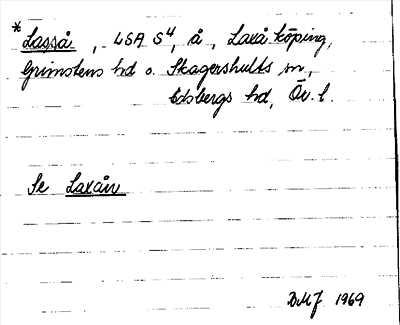 * Lasså, LSA S4, å, Laxå köping,
Grimstens hd o. Skagershults sn,
Edsbergs hd, Ör. l.
Se Laxån
BMJ 1969